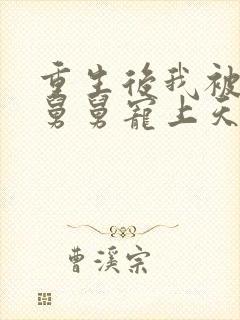 重生後我被
舅舅寵上天
曹溪宗